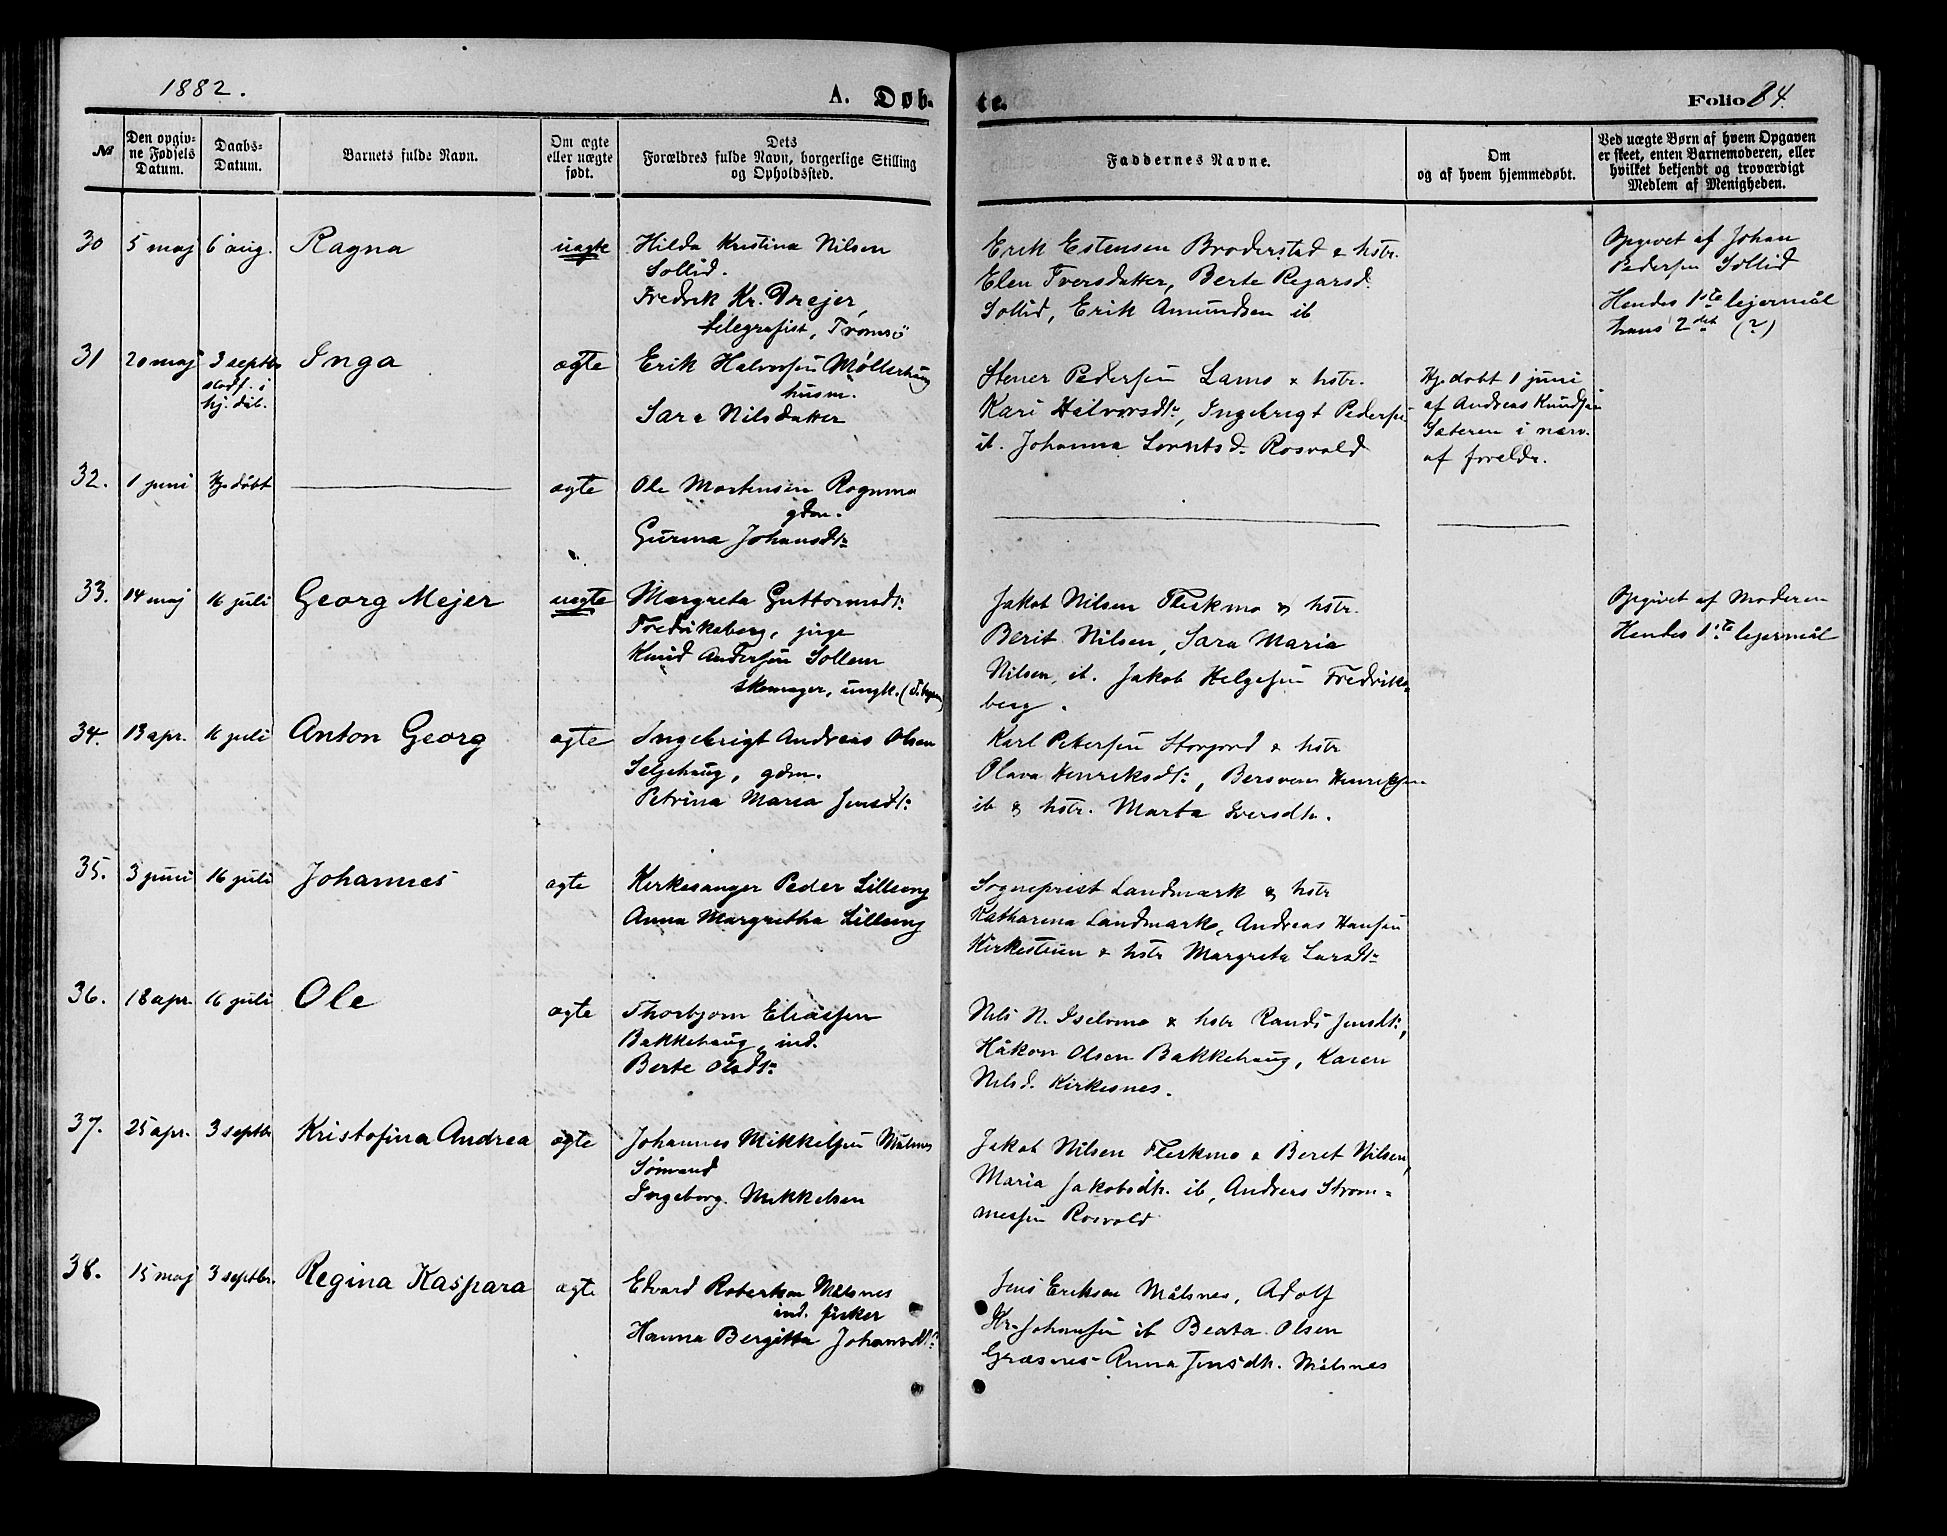 1882.
A. Døb-
te.
Folio 84.
№
Den opgiv-
ne Fødsels
Datum.
Daabs-
Datum.
Barnets fulde Navn.
Om ægte
eller uægte
født.
Dets
Forældres fulde Navn, borgerlige Stilling
og Opholdssted.
Faddernes Navne.
Om
og af hvem hjemmedøbt.
Ved uægte Børn af hvem Opgaven
er skeet, enten Barnemoderen, eller
hvilket bekjendt og troværdigt
Medlem af Menigheden.
30 5 maj 6 aug. Ragna uægte
Hilda Kristina Nilsen
Sollid.
Fredrik Kr. Drejer
telegrafist, Tromsö
Erik Estensen Broderstad & hstr.
Elen Iversdatter, Berte Regarsd.
Sollid, Erik Amundsen ib
Opgivet af Johan
Pedersen Sollid
Hendes 1ste lejermål
hans 2det (?)
31 20 maj 3 septbr
stadf. i
hj. dåb.
Inga ægte
Erik Halvorsen Möllerhaug
husm.
Sara Nilsdatter
Stener Pedersen Lamo & hstr.
Kari Halvorsdtr, Ingebrigt Pedersen
ib. Johanna Lorntsd. Rosvold
Hj. døbt 1 juni
af Andreas Knudsen
Sæteren i nærv.
af foreldr.
32. 1 juni Hj. döbt ægte
Ole Mortensen Rognmo
gdm.
Gurina Johansdtr
33. 14 maj 16 juli Georg Mejer uægte
Margreta Guttormsdtr
Fredriksberg, pige
Knud Andersen Sollem
skomager, ungk.
Jakob Nilsen Fleskmo & hstr.
Berit Nilsen, Sara Maria
Nilsen, ib. Jakob Helgesen Fredriks-
berg.
Opgivet af Moderen
Hendes 1ste lejermål
34. 13 apr. 16 juli Anton Georg ægte
Ingebrigt Andreas Olsen
Seljehaug, gdm.
Petrina Maria Jensdtr
Karl Petersen Storjord & hstr
Olava Henriksdtr, Bersven Henriksen
ib & hstr. Marta Iversdtr.
35. 3 juni 16 juli Johannes ægte
Kirkesanger Peder Lilleeng
Anna Margretha Lilleeng
Sogneprest Landmark & hstr
Katharina Landmark, Andreas Hansen
Kirkesteen & hstr Margreta Larsdtr
36. 18 apr. 16 juli Ole ægte
Thorbjørn Eliassen
Bakkehaug, ind.
Berte Olsdtr
Nils N. Iselvmo & hstr Randi Jensdtr,
Håkon Olsen Bakkehaug, Karen
Nilsd. Kirkesnes.
37. 25 apr. 3 septbr Kristofina Andrea ægte
Johannes Mikkelsen Målsnes
Sömand
Ingeborg Mikkelsen
Jakob Nilsen Fleskmo & Beret Nilsen,
Maria Jakobsdtr. ib, Andreas Strom-
mesen Rosvold
38. 15 maj 3 septbr. Regina Kaspara ægte
Edvard Robertsen Målsnes
ind. fisker
Hanna Bergitta Johansdtr
Jens Eriksen Målsnes, Adolf
Kr. Johansen ib Beata Olsen
Græsnes Anna Jensdtr. Målsnes